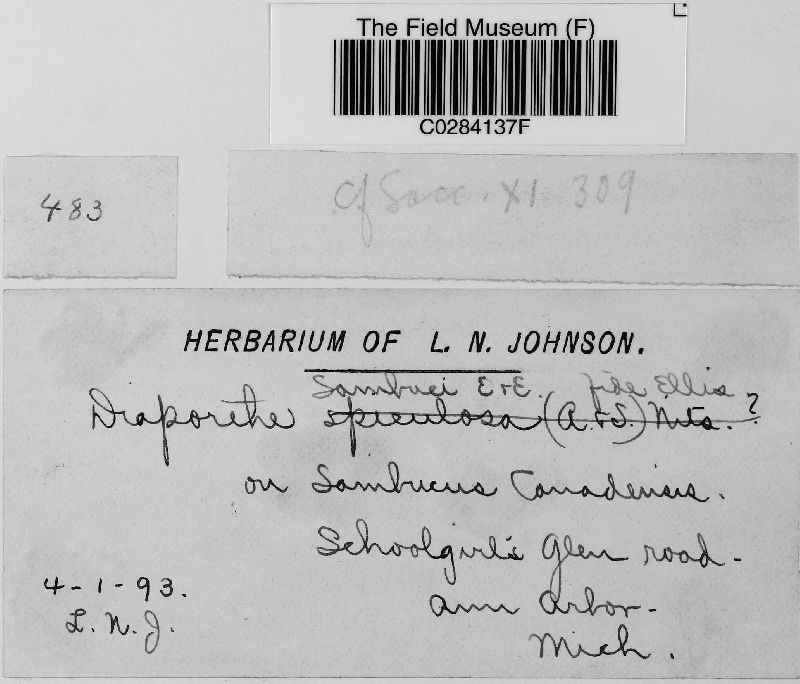 The Field Museum (F)
C0284137F
483
cf Sacc. XI. 309
HERBARIUM OF L. N. JOHNSON.
Sambuci E+E. fide Ellis
Diaporthe spiculosa (A.+S.) Nits. ?
on Sambucus Canadensis.
Schoolgirl's Glen road-
4-1-93.
Ann Arbor-
L. N. J.
Mich.